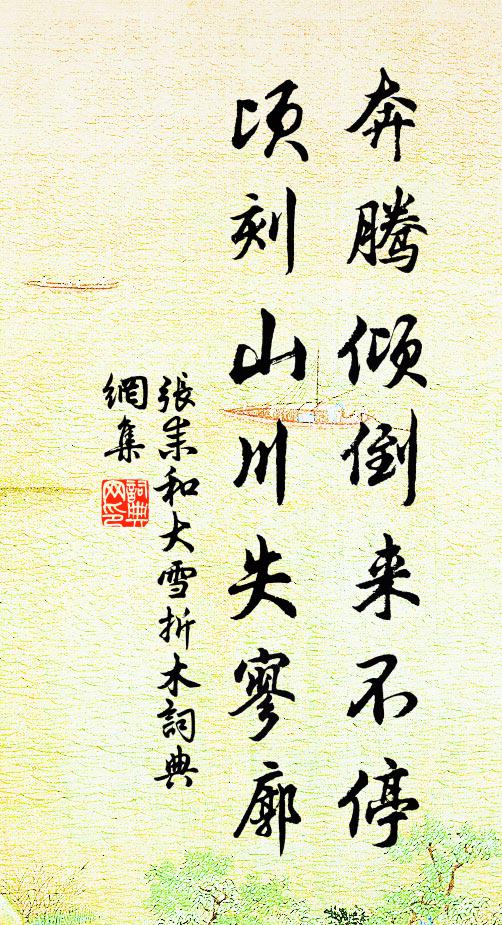 奔腾倾倒来不停
顷刻山川失寥廓
張耒和大雪折木詞典
網集
詞典网印